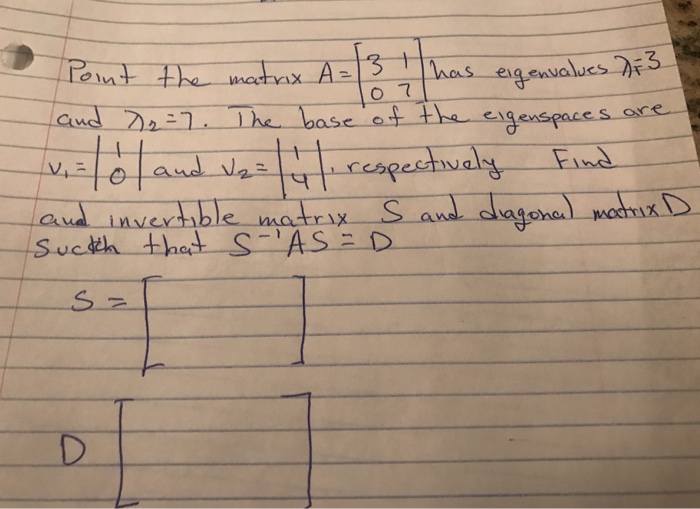 Point the matrix A = [3 1 has eigenvalues λ1=3
0 7]
and λ2=7. The base of the eigenspaces are
v1 = |1 and v2 = |1 , respectively Find
0| 4|
and invertible matrix S and diagonal matrix D
Such that S⁻¹AS = D
S = [ ]
D [ ]